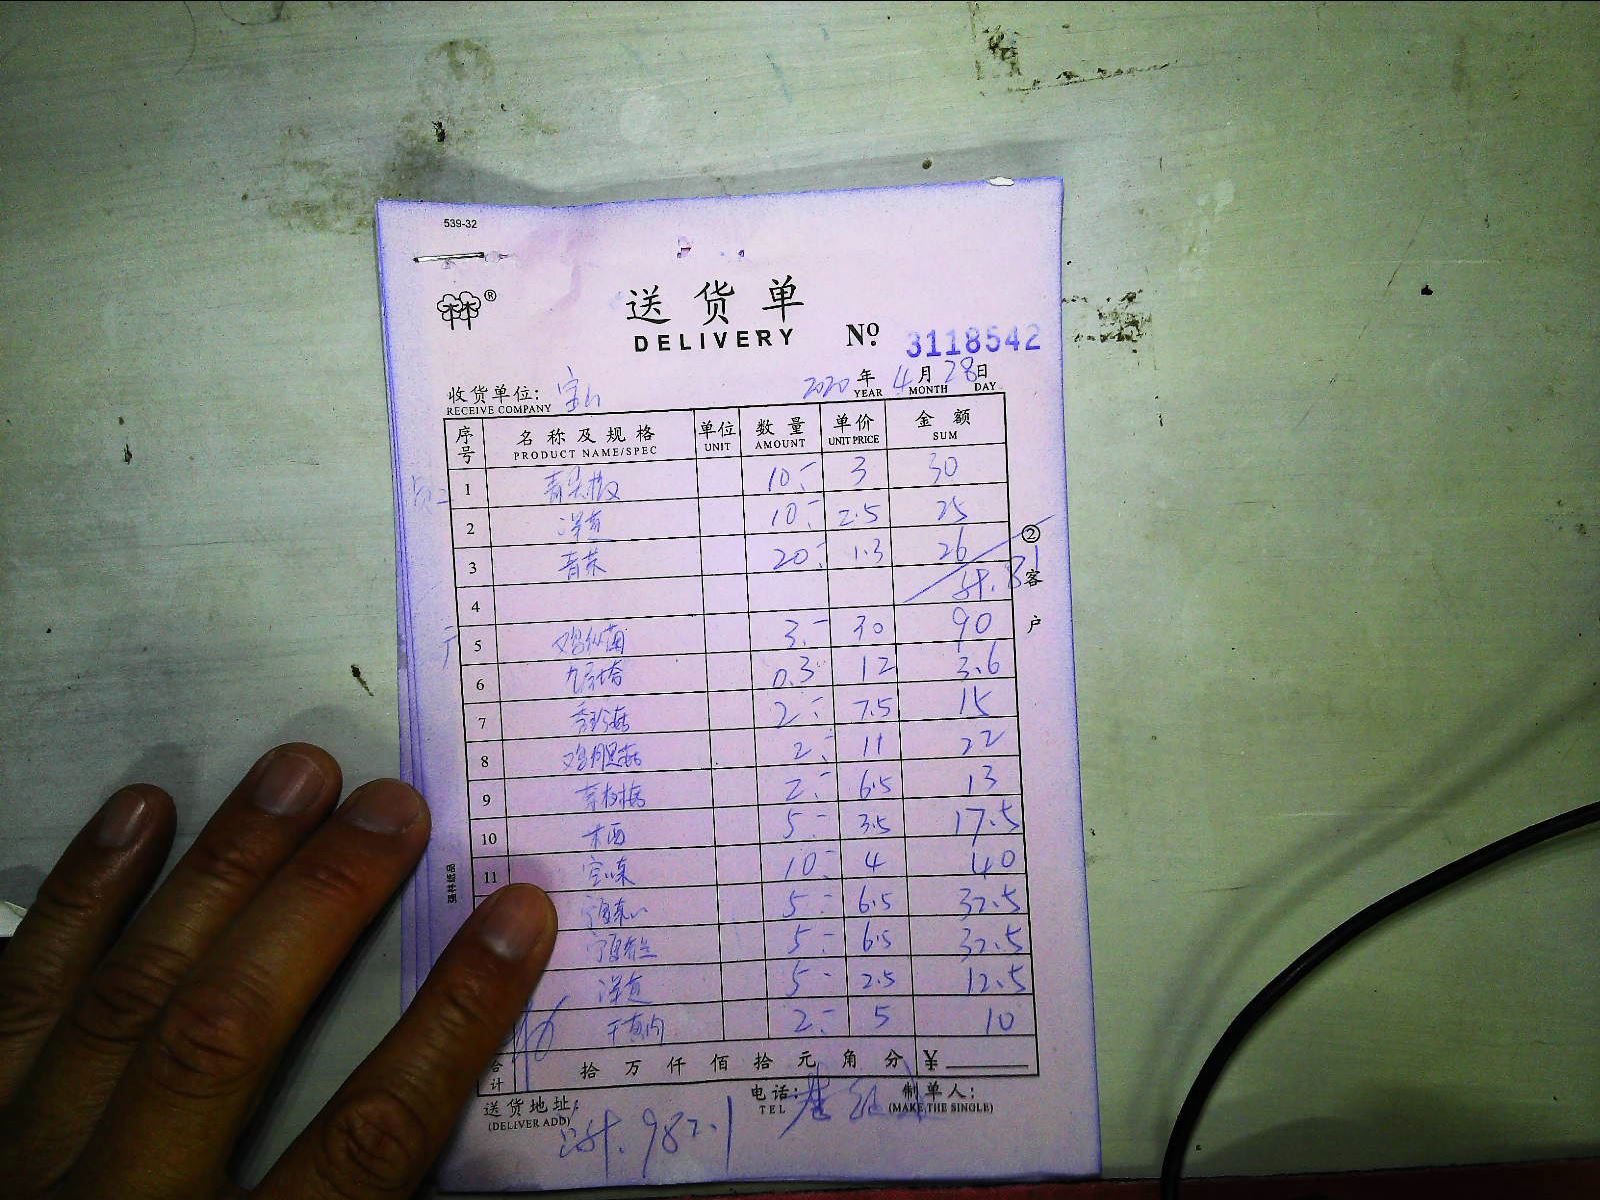 539-32
林®
送货单
DELIVERY № 3118542
收货单位: 宝山 2020年 4月 28日
RECEIVE COMPANY YEAR MONTH DAY
序号 名称及规格 单位 数量 单价 金额
PRODUCT NAME/SPEC UNIT AMOUNT UNIT PRICE SUM
1 10 3 30
2 洋芋 10 2.5 25
3 青菜 20 1.3 26
4 计.81
5 鸡纵菌 3 30 90
6 九层塔 0.3 12 3.6
7 秀珍菇 2 7.5 15
8 鸡腿菇 2 11 22
9 茶树菇 2 6.5 13
10 木西 5 3.5 17.5
11 10 4 40
5 6.5 32.5
5 6.5 32.5
洋芋 5 2.5 12.5
2 5 10
合计 拾 万 仟 佰 拾 元 角 分 ¥
送货地址: 电话: 制单人:
(DELIVER ADD) TEL (MAKE THE SINGLE)
计.982.1
②客户